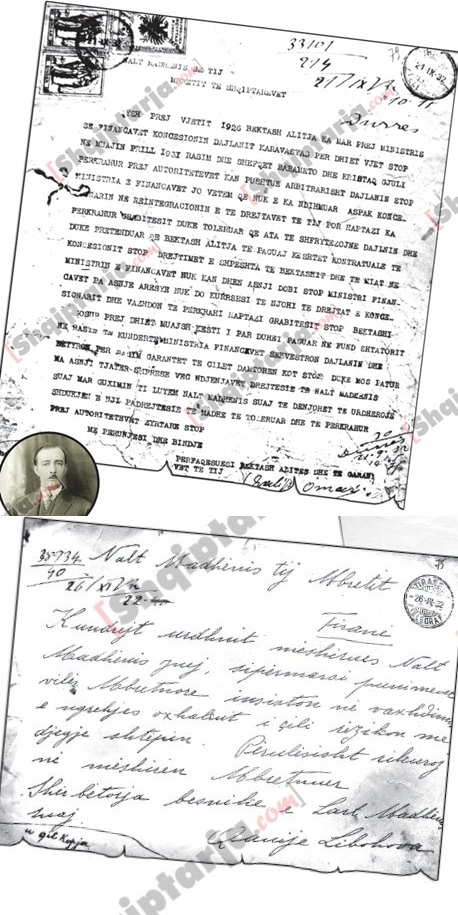 33701
274
21/IX/
10 11
Durres
21 IX.32
NALT MADHENIS SE TIJ
MBRETIT TE SHQIPTAREVET
QYSH PREJ VJETIT 1926 BEKTASH ALITJA KA MAR PREJ MINISTRIS
SE FINANCAVET KONCESIONIN DAJLANIT KARAVASTAS PER DHIET VJET STOP
NE MUAJIN PRILL 1931 RASIM DHE SHEFQET BABAMETO DHE KRISTAQ GJULI
PERKRAHUR PREJ AUTORITETEVET KAN PUSHTUE ARBITRARISHT DAJLANIN STOP
MINISTRIA E FINANCAVET JO VETEM QE NUK E KA NDIHMUAR ASPAK KONCE-
SIONARIN NE REINTEGRACIONIN E TE DREJTAVET TE TIJ POR HAPTAZI KA
PERKRAHUR GRABITESIT DUKE TOLERUAR QE ATA TE SHFRYTEZOJNE DAJLNIN DHE
DUKE PRETENDUAR QE BEKTASH ALITJA TE PAGUAJ KESHTET KONTRATUALE TE
KONCESIONIT STOP DREJTIMET E SHPESHTA TE BEKTASHIT DHE TE MIAT NE
MINISTRIN E FINANCAVET NUK KAN DHEN ASNJI DOBI STOP MINISTRI FINAN-
CAVET PA ASNJE ARESYE NUK DO KURRSESI TE NJOHI TE DREJTAT E KONCE-
SIONARIT DHE VAZHDON TE PERKRAHI HAPTAZI GRABITESIT STOP BEKTASHI
POSHTE PREJ DHIET MUAJSH KESTI I PAR DUHEJ PAGUAR NE FUND SHTATORIT
NE RASTE TE KUNDERT MINISTRIA FINANCAVET SEKVESTRON DAJLANIN DHE
DETYRON PER PAGIM GARANTET TE CILET DAMTOHEN KOT STOP DUKE MOS PATUR
MA ASNJI TJATER SHPRESE VEC NDJENJAVET DREJTESIE TE NALT MADHENIS
SUAJ MAR GUXIMIN TI LUTEM NALT MADHENIS SUAJ TE DENJOHET TE URDHEROJE
SHDUKJEN E NJI PADREJTESIE TE MADHE TE TOLERUAR DHE TE PERKRAHUR
PREJ AUTORITETEVET ZYRTARE STOP
ME PERUNJESI DHE BINDJE
PERFAQESUESI BEKTASH ALITES DHE TE GARANT
VET TE TIJ
Omari
Durres
35934
40
26/XI/
22
Nalt Madhenis tij Mbretit
Tirane
TIRANE
TELEGRAF
Kundrejt urdhnit meshirues Nalt
Madhenis juej, sipermarsi punimevet
viles Mbretnore insiston ne vazhdimin
e ngrehjes oxhakut i cili rrezikon me
djegje shtepin. Perulesisht rekurroj
ne meshiren Mbretnuer
Sherbetorja besnike e Lart Madhenis
suaj
Libohova
u git kopja
[Shqiptarja.com]